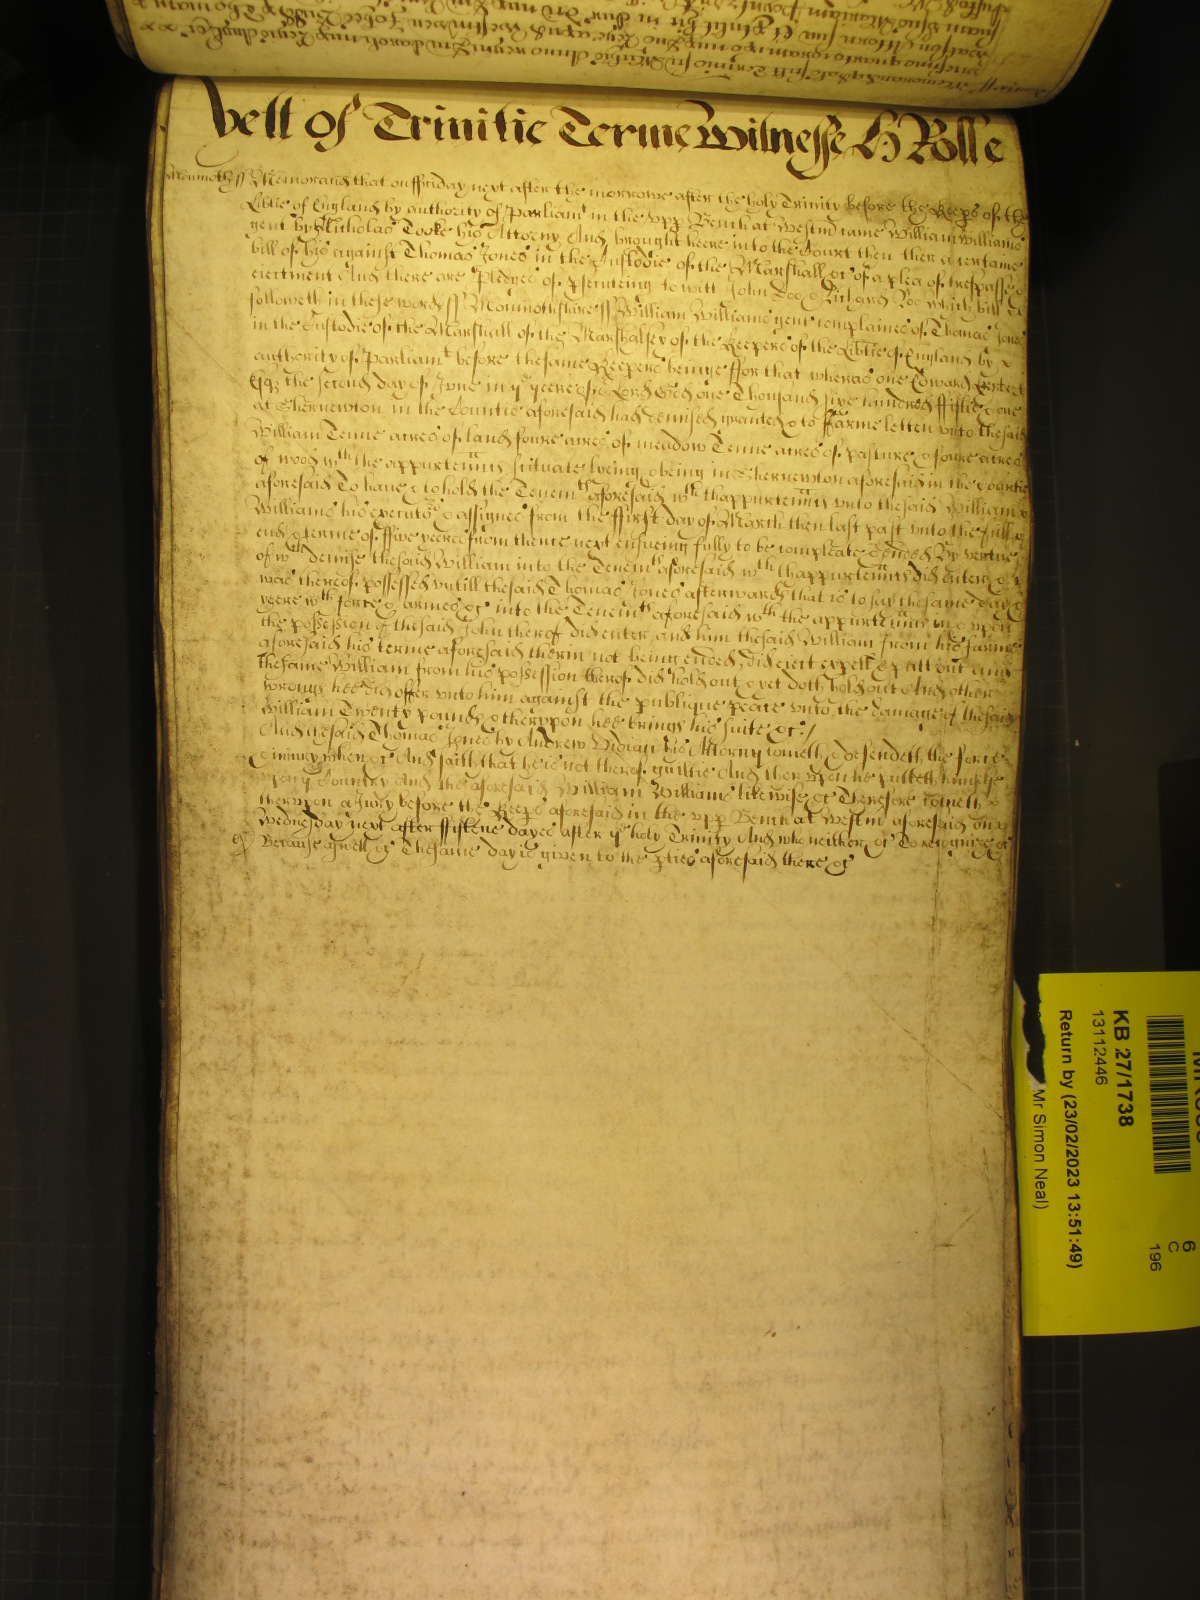 yett of Trinitie Terme Witnesse H Rolle
Monmoth ss Memorand that on ffriday next after the morrowe after the holy Trinity before the Keeps of the
Libtie of England by authority of Parliamt in the upp Bench at Westm came William Williams
gent by Nicholas Tooke his Attorny And brought heere into the Court then ther a certaine
bill of his against Thomas Jones in the Custodie of the Marshall &c of a plea of trespasse &
eiectment And there are Pledges of psecuteing to witt John Doo & Richard Roo which bill
followeth in these words ss Monmothshire ss William Williams gent complaines of Thomas Jones
in the Custodie of the Marshall of the Marshalsey of the Keepers of the Libtie of England by
authority of Parliamt before the same Keepers beinge ffor that wheras one Edward
Esqr the second day of June in ye yeere of or Lord God one Thousand sixe hundred ffiftie & one
at Shernewton in the Countie aforesaid had demised granted & to ffarme letten unto the said
William Tenne acres of land foure acres of meadow Tenne acres of pasture & foure acres
of wood wth the appurtennts scituate lyeing & being in Shernewton aforesaid in the Countie
aforesaid To have & to hold the Tenemts aforesaid wth thappurtennts unto the said William
Williams his executors & assignes from the ffirst day of March then last past unto the full
end & terme of ffive yeeres from thence next ensueing fully to be compleate & ended By vertue
of wch demise the said William into the Tenemts aforesaid wth thappurtennts did enter &
was thereof possessed untill the said Thomas Jones afterwards that is to say the same day &
yeere wth force & armes &c into the Tenemts aforesaid wth the appurtennts in & upon
the possession of the said John therof did enter and him the said William from his farme
aforesaid his terme aforesaid therin not being ended did eiect expell & putt out and
the same William from his possession therof did hold out & yet doth hold out And other
wrongs hee did offer unto him against the publique peace unto the damage of the said
William Twenty pounds & therupon hee brings his suite &c /
And the said Thomas Jones by Andrew Vidian his Attorny cometh & defendeth the force
& iniury when &c And saith that he is not therof guiltie And therupon he putteth himselfe
upon ye Country And the aforesaid William Williams likewise &c Therefore cometh
therupon a Jury before the Keeps aforesaid in the upp Bench at Westm aforesaid on
Wednesday next after fifteene dayes after ye holy Trinity And who neither &c To recognize &c
Because aswell &c The same day is given to the pties aforesaid there &c
KB 27/1738
13112446
Return by (23/02/2023 13:51:49)
Mr Simon Neal)
6
C
196